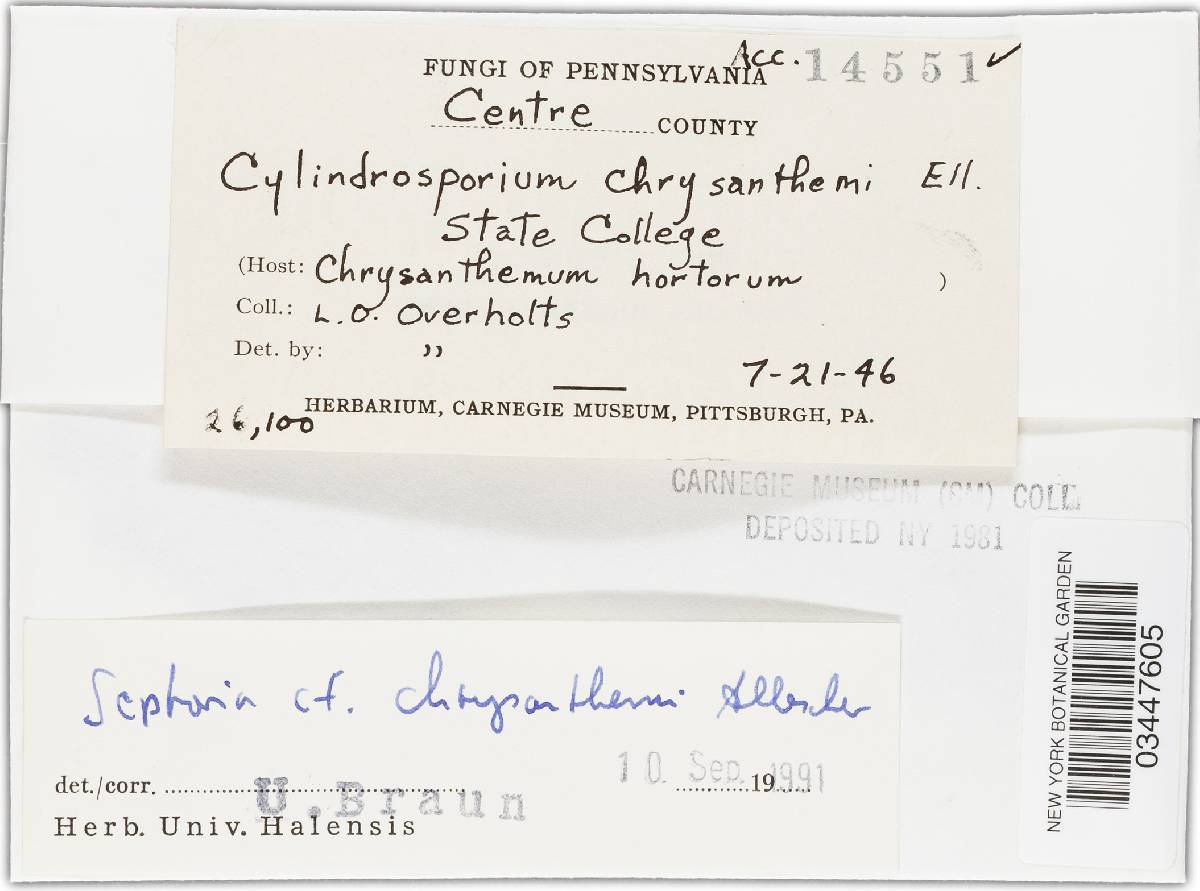 Acc. 14551 ✓
FUNGI OF PENNSYLVANIA
Centre COUNTY
Cylindrosporium chrysanthemi Ell.
State College
(Host: Chrysanthemum hortorum )
Coll.: L.O. Overholts
Det. by: ”
7-21-46
HERBARIUM, CARNEGIE MUSEUM, PITTSBURGH, PA.
26,100
CARNEGIE MUSEUM (SM) COLL.
DEPOSITED NY 1981
NEW YORK BOTANICAL GARDEN
03447605
Septoria cf. chrysanthemi Allescher
10. Sep. 1991
det./corr. U. Braun 19
Herb. Univ. Halensis